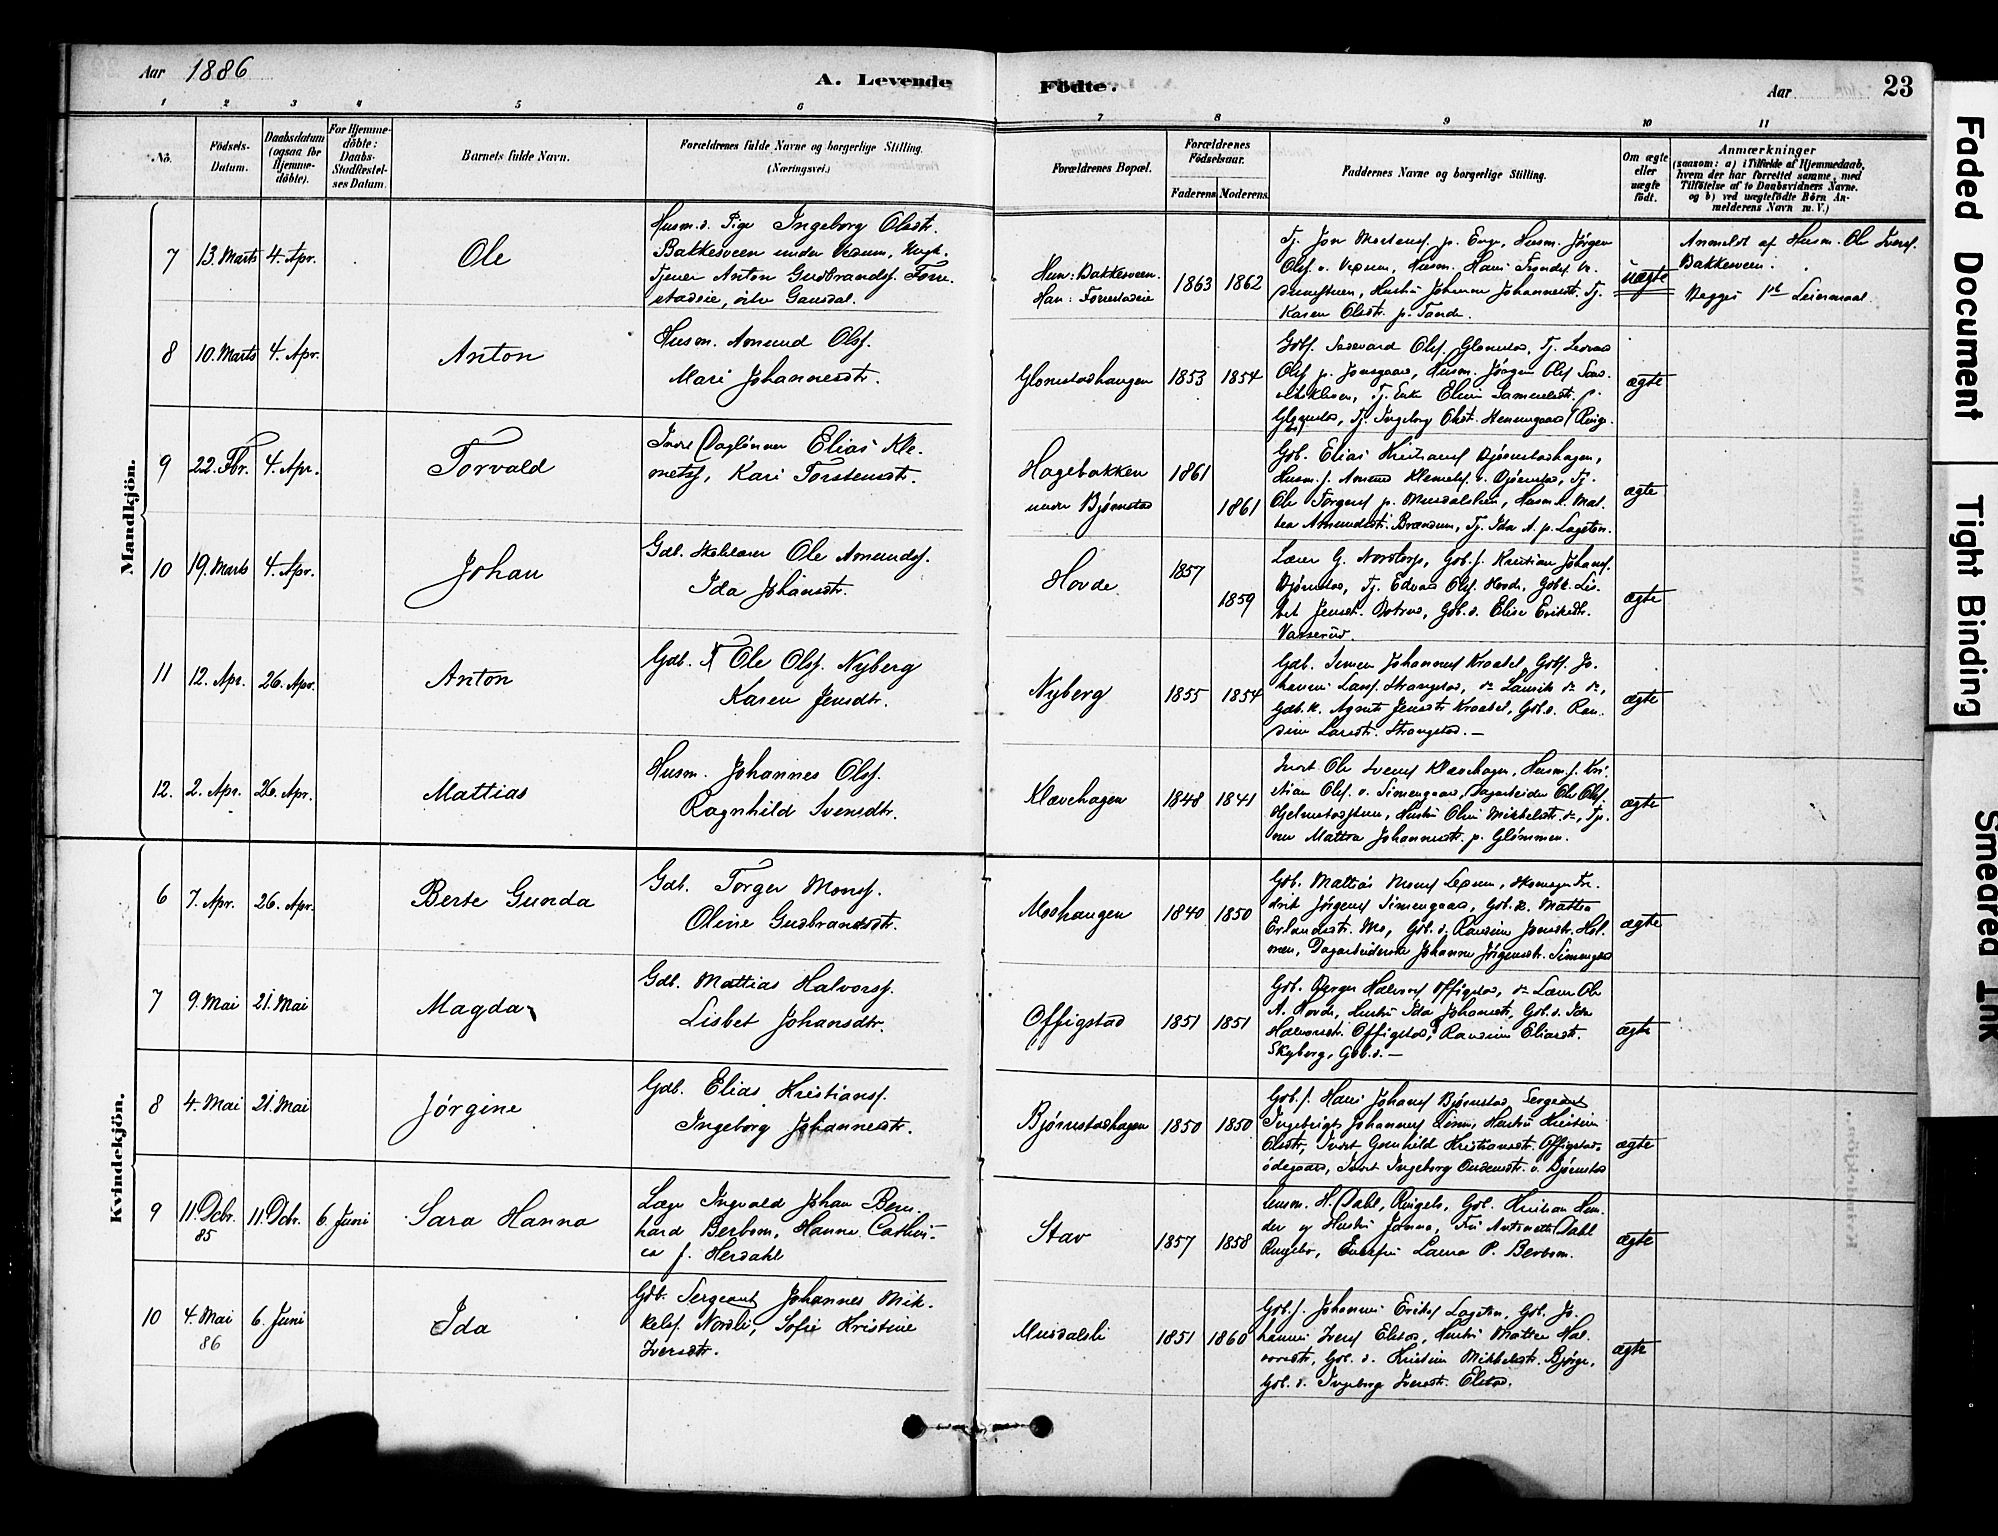 Aar 1886
A. Levende Födte.
Aar
23
1 2 3 4 5 6 7 8 9 10 11
No.
Födsels-Datum.
Daabsdatum (ogsaa for Hjemme-døbte).
For Hjemme-døbte: Daabs-Stadfæstel-ses Datum.
Barnets fulde Navn.
Forældrenes fulde Navne og borgerlige Stilling. (Næringsvei.)
Forældrenes Bopæl.
Forældrenes Födselsaar.
Faderens Moderens
Faddernes Navne og borgerlige Stilling.
Om ægte eller uægte født.
Anmærkninger
(saasom: a) i Tilfælde af Hjemmedaab, hvem der har forrettet samme, med Tilføielse af to Daabsvidners Navne, og b) ved uægtefødte Børn Anmelderens Navn m. V.)
Mandkjön.
7 13. Marts 4. Apr. Ole
Husm.d. Pige Ingeborg Olsdtr.
Bakkesveen under
Tjener Anton Gudbrandsf.
Gausdal.
Hun: Bakkesveen.
Han:
1863 1862
Tj. Jon Mortensf. p. Enge, Husm. Jørgen
Olsf.
Johanne Johannesdtr. Tj.
Karen Olsdtr. p. Tande.
uægte
Anmeldt af Husm. Ole Iversf.
Bakkesveen.
Begges 1st Leiermaal.
8 10. Marts 4. Apr. Anton
Husm. Amund Olsf.
Mari Johannesdtr.
Glomstadhaugen 1853 1854
Olsf. Glomstad, Tj.
Olsf p. Jonsgaard, Husm. Jørgen Olsf
Tj. Enke Eline Samuelsdtr. p.
Tj. Ingeborg Olsdt.
ægte
9 22. Fbr. 4. Apr. Torvald
Inds. Daglønner Elias Kle-
metsf, Kari Torstensdtr.
Hagebakken
under Bjørnstad
1861
1861
Gdb. Elias Kristiansf Bjørnstadhagen,
Husm. f. Amund Klemetsf. v. Bjørnstad, Tj.
Ole Torgersf p. Musdalslien, Husm.
Amundsdtr. Brændum, Tj. Ida A. p. Lageton.
ægte
10 19. Marts 4. Apr. Johan
Gdb. Skolelærer Ole Amundsf.
Ida Johansdtr.
Hovde
1857
1859
Lærer G. Nordtorp, Gdb. f. Kristian Johansf.
Bjørnstad, Tj. Edvard Olsf. Hovde,
Jensdt. Gdb. d. Elise Eriksdtr.
ægte
11 12. Apr. 26. Apr. Anton
Gdb. Ole Olsf. Nyberg
Karen Jensdtr.
Nyberg 1855 1854
Gdb. Simen Johannesf Kraabel, Gdbf. Jo-
hannes Larsf. Strangstad,
Gdb. k. Agnete Jensdtr Kraabel, Gdb. d. Ran-
dine Larsdtr. Strangstad.—
ægte
12. 2. Apr. 26. Apr. Mattias
Husm. Johannes Olsf.
Ragnhild Svensdtr.
Klævehagen 1848 1841
Inds. Ole Svensf Klævehagen, Husm. f. Kri-
stian Olsf. v. Simengaard, Dagarbeider Ole Olsf
Hustru Oline Mikkelsdtr.
Mattea Johannesdtr. p. Glømmen.
ægte
Kvindekjön.
6 7. Apr. 26. Apr. Berte Gunda
Gdb. Torger Monsf.
Oline Gudbrandsdtr.
Moshaugen 1840 1850
Gdb. Mattias Monsf Lexum, Skomager Fre-
drik Jørgensf Simengaard, Gdb. k. Mattea
Erlandsdtr. Mo, Gdb. d. Randine Jonsdtr. Hol-
men, Dagarbeiderske Johanne Jørgensdtr. Simengaard
ægte
7 9. Mai 21. Mai Magda
Gdb. Mattias Halvorsf.
Lisbet Johansdtr.
Offigstad 1851 1851
Gdb. Børger Halvorsf Offigstad, Lærer Ole
A. Hovde, Hustru Ida Johansdtr, Gdb. d. Ida
Halvorsdtr. Offigstad, Randine Eliasdtr.
Skyberg, Gdb.d.—
ægte
8 4. Mai 21. Mai Jørgine
Gdb. Elias Kristiansf.
Ingeborg Johannesdtr.
Bjørnstadhagen 1850 1850
Gdb. f. Hans Johansf Bjørnstad, Sergeant
Ingebrigt Johannesf Hustru Kristine
Olsdtr, Inds. Gunhild Kristiansdtr. Offigstad-
ødegaard, Inds. Ingeborg v. Bjørnstad
ægte
9 11. Dcbr. 85 11. Dcbr. 6. Juni Sara Hanna
Læge Ingvald Johan Bern-
hard Berbom, Hanna Cathri-
ca f. Herdahl
Stav 1857 1858
Lensm. H. Dahl, Ringebu, Gdb. Kristian
og Hustru Janna, Fru Antonette Dahl
Ringebu, Laura P. Berbom.
ægte
10 4. Mai 86 6. Juni Ida
Gdb. Sergeant Johannes Mik-
kelsf. Nordli, Sofie Kristine
Iversdtr.
Musdalsli 1851 1860
Gdb. f. Johannes Eriksf Lageton, Gdb. Jo-
hannes Iversf Elstad, Hustru Mattea Hal-
vorsdtr, Gdb. d. Kristine Mikkelsdtr. Bjørge,
Gdb. d. Ingeborg Iversdtr. Elstad.
ægte
Faded Document
Tight Binding
Smeared Ink